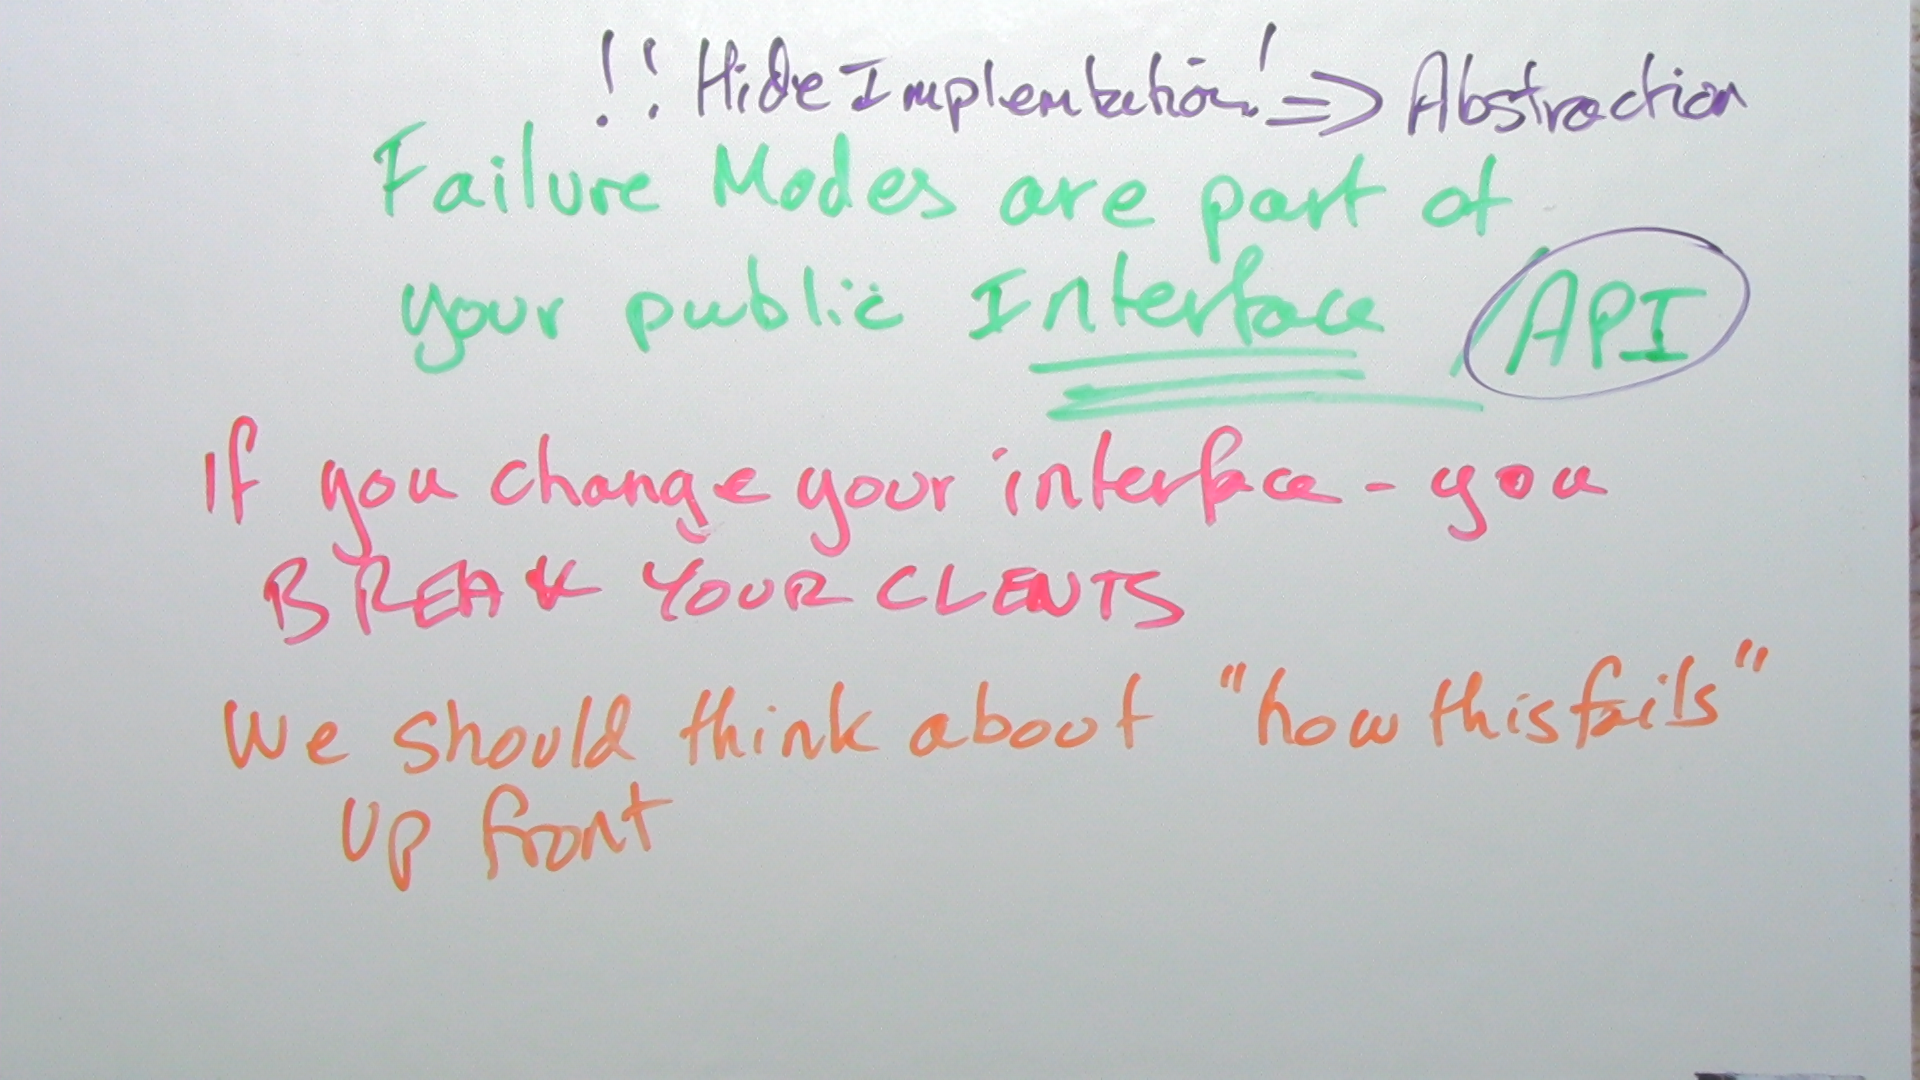 !! Hide Implemtation! => Abstraction
Failure Modes are part of
your public Interface / API
If you change your interface - you
BREAK YOUR CLENTS
We should think about "how this fails"
Up front